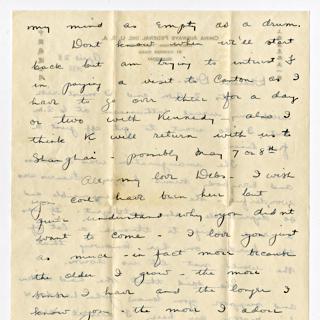 my mind as empty as a drum.
Dont know when we'll start
back but am trying to
in paying a visit to Canton as I
have to go over there for a day
or two with Kennedy - also I
think K will return with us to
Shanghai possibly May 7 or 8th
All my love Debs - I wish
you could have been here but
quite understand why you didnt
want to come - I love you just
as much - in fact more because
the older I grow - the more
sense I have and the longer I
know you - the more I adore